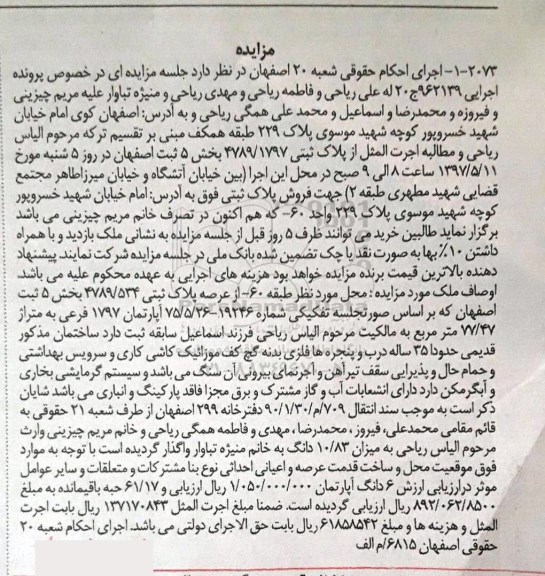 مزایده
۲۰۷۳-۱- اجرای احکام حقوقی شعبه ۲۰ اصفهان در نظر دارد جلسه مزایده ای در خصوص پرونده
اجرایی ۹۶۲۱۳۹ج۲۰ له علی ریاحی و فاطمه ریاحی و مهدی ریاحی و منیژه تباوار علیه مریم چیزینی
و فیروزه و محمدرضا و اسماعیل و محمد علی همگی ریاحی و به آدرس: اصفهان کوی امام خیابان
شهید خسروپور کوچه شهید موسوی پلاک ۲۲۹ طبقه همکف مبنی بر تقسیم ترکه مرحوم الیاس
ریاحی و مطالبه اجرت المثل از پلاک ثبتی ۴۷۸۹/۱۷۹۷ بخش ۵ ثبت اصفهان در روز ۵ شنبه مورخ
۱۳۹۷/۵/۱۱ ساعت ۸ الی ۹ صبح در محل این اجرا (بین خیابان آتشگاه و خیابان میرزاطاهر مجتمع
قضایی شهید مطهری طبقه ۲) جهت فروش پلاک ثبتی فوق به آدرس: امام خیابان شهید خسروپور
کوچه شهید موسوی پلاک ۲۲۹ واحد ۶۰- که هم اکنون در تصرف خانم مریم چیزینی می باشد
برگزار نماید طالبین خرید می توانند ظرف ۵ روز قبل از جلسه مزایده به نشانی ملک بازدید و با همراه
داشتن ۱۰٪ بها به صورت نقد یا چک تضمین شده بانک ملی در جلسه مزایده شرکت نمایند. پیشنهاد
دهنده بالاترین قیمت برنده مزایده خواهد بود هزینه های اجرایی به عهده محکوم علیه می باشد.
اوصاف ملک مورد مزایده: محل مورد نظر طبقه ۶۰- از عرصه پلاک ثبتی ۴۷۸۹/۵۳۴ بخش ۵ ثبت
اصفهان که بر اساس صورتجلسه تفکیکی شماره ۱۹۲۴۶-۷۵/۵/۲۶ آپارتمان ۱۷۹۷ فرعی به متراژ
۷۷/۴۷ متر مربع به مالکیت مرحوم الیاس ریاحی فرزند اسماعیل سابقه ثبت دارد ساختمان مذکور
قدیمی حدودا ۳۵ ساله درب و پنجره ها فلزی بدنه گچ کف موزائیک کاشی کاری و سرویس بهداشتی
و حمام حال و پذیرایی سقف تیرآهن و آجرنمای بیرونی آن سنگ می باشد و سیستم گرمایشی بخاری
و آبگرمکن دارد دارای انشعابات آب و گاز مشترک و برق مجزا فاقد پارکینگ و انباری می باشد شایان
ذکر است به موجب سند انتقال ۷۰۹/م/۹۰/۱/۳۰ دفترخانه ۲۹۹ اصفهان از طرف شعبه ۲۱ حقوقی به
قائم مقامی محمدعلی، فیروز، محمدرضا، مهدی و فاطمه همگی ریاحی و خانم مریم چیزینی وارث
مرحوم الیاس ریاحی به میزان ۱۰/۸۳ دانگ به خانم منیژه تباوار واگذار گردیده است با توجه به موارد
فوق موقعیت محل و ساخت قدمت عرصه و اعیانی احداثی نوع بنا مشترکات و متعلقات و سایر عوامل
موثر در ارزیابی ارزش ۶ دانگ آپارتمان ۱/۰۵۰/۰۰۰/۰۰۰ ریال ارزیابی و ۶۱/۱۷ حبه باقیمانده به مبلغ
۸۹۲/۰۶۲/۸۵۰۰ ریال ارزیابی گردیده است. ضمنا مبلغ اجرت المثل ۱۳۷۱۷۰۸۴۳ ریال بابت اجرت
المثل و هزینه ها و مبلغ ۶۱۸۵۸۵۴۲ ریال بابت حق الاجرای دولتی می باشد. اجرای احکام شعبه ۲۰
حقوقی اصفهان ۶۸۱۵/م الف